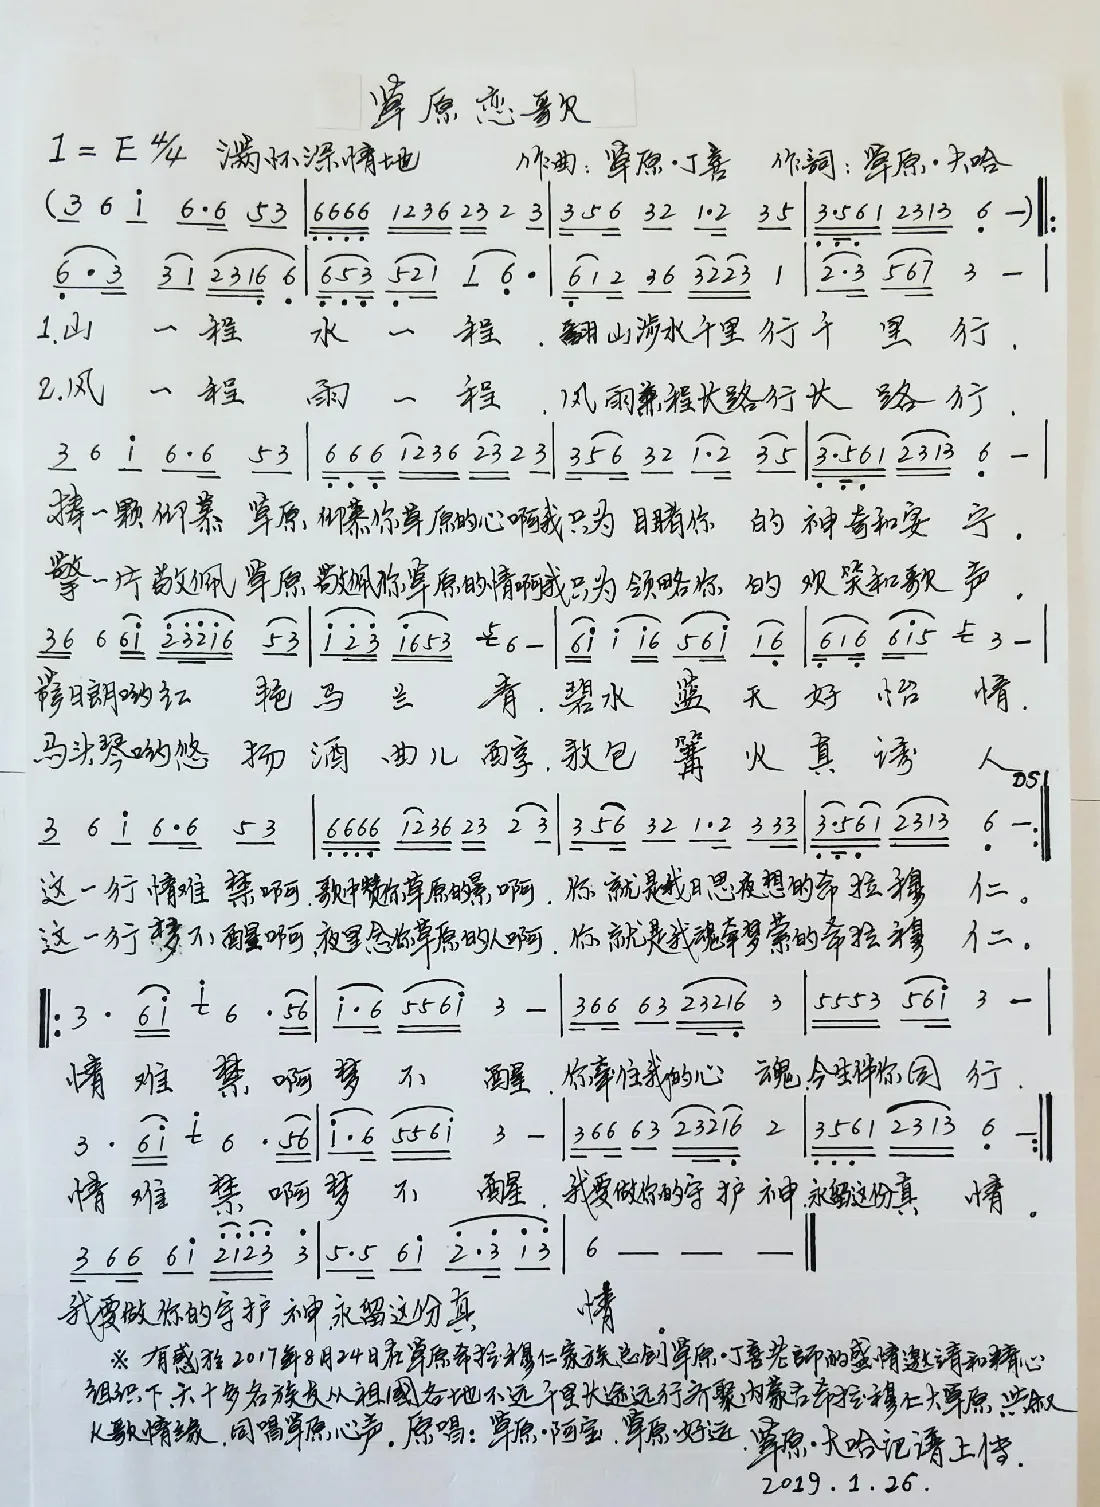 草原恋歌
1=E 4/4 满怀深情地 作曲:草原·丁喜 作詞:草原·大哈
(3 6 i 6·6 53 | 6666 1236 23 2 3 | 356 32 1·2 35 | 3·561 2313 6 —) ‖:
6·3 31 2316 6 | 653 521 1 6· | 612 36 3223 1 | 2·3 567 3 — |
1.山一程水一程.翻山涉水千里行千里行.
2.风一程雨一程.风雨兼程长路行长路行.
3 6 i 6·6 53 | 666 1236 23 23 | 356 32 1·2 35 | 3·561 2313 6 — |
捧一颗仰慕草原仰慕你草原的心啊我只为目睹你的神奇和安宁.
擎一片敬佩草原敬佩你草原的情啊我只为领略你的欢笑和歌声.
36 6 6i 23216 53 | i23 i653 6 — | 6i i i6 56i 16 | 616 6i5 3 — |
日朗哟红艳马兰青.碧水蓝天好怡情.
马头琴哟悠扬酒曲儿醇.敖包篝火真诱人
DS
3 6 i 6·6 53 | 6666 1236 23 2 3 | 356 32 1·2 333 | 3·561 2313 6 —:‖
这一行情难禁啊.歌中赞你草原的景啊.你就是我日思夜想的希拉穆仁。
这一行梦不醒啊.夜里念你草原的人啊.你就是我魂牵梦萦的希拉穆仁.
‖: 3· 6i 6 ·56 | i·6 556i 3 — | 366 63 23216 3 | 5553 56i 3 — |
情难禁啊梦不醒.你牵住我的心魂.今生伴你同行.
3· 6i 6 ·56 | i·6 556i 3 — | 366 63 23216 2 | 3561 2313 6 —:‖
情难禁啊梦不醒.我要做你的守护神.永留这份真情。
366 6i 2123 3 | 5·5 6i 2·3 i3 | 6 — — — ‖
我要做你的守护神永留这份真情.
※有感於2017年8月24日在草原希拉穆仁家族总创草原·丁喜老師的盛情邀请和精心
组织下六十多名族友从祖國各地不远千里长途远行齐聚内蒙古希拉穆仁大草原共叙
K歌情缘.同唱草原心声.原唱:草原·阿宝.草原·好远.草原·大哈记谱上传.
2019.1.26.